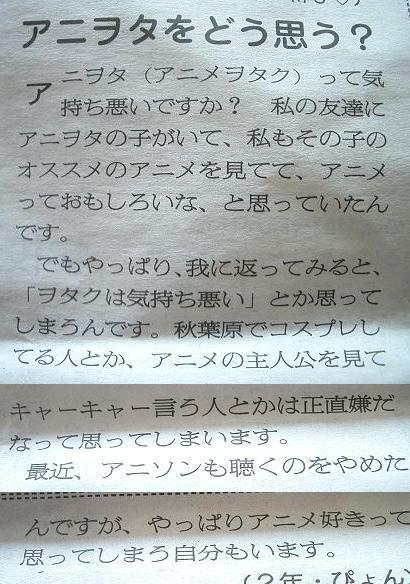 アニヲタをどう思う？
アニヲタ（アニメヲタク）って気
持ち悪いですか？　私の友達に
アニヲタの子がいて、私もその子の
オススメのアニメを見てて、アニメ
っておもしろいな、と思っていたん
です。
　でもやっぱり、我に返ってみると、
「ヲタクは気持ち悪い」とか思って
しまうんです。秋葉原でコスプレし
てる人とか、アニメの主人公を見て
キャーキャー言う人とかは正直嫌だ
なって思ってしまいます。
　最近、アニソンも聴くのをやめた
んですが、やっぱりアニメ好きって
思ってしまろ自分もいます。
（２年・ぴょん）